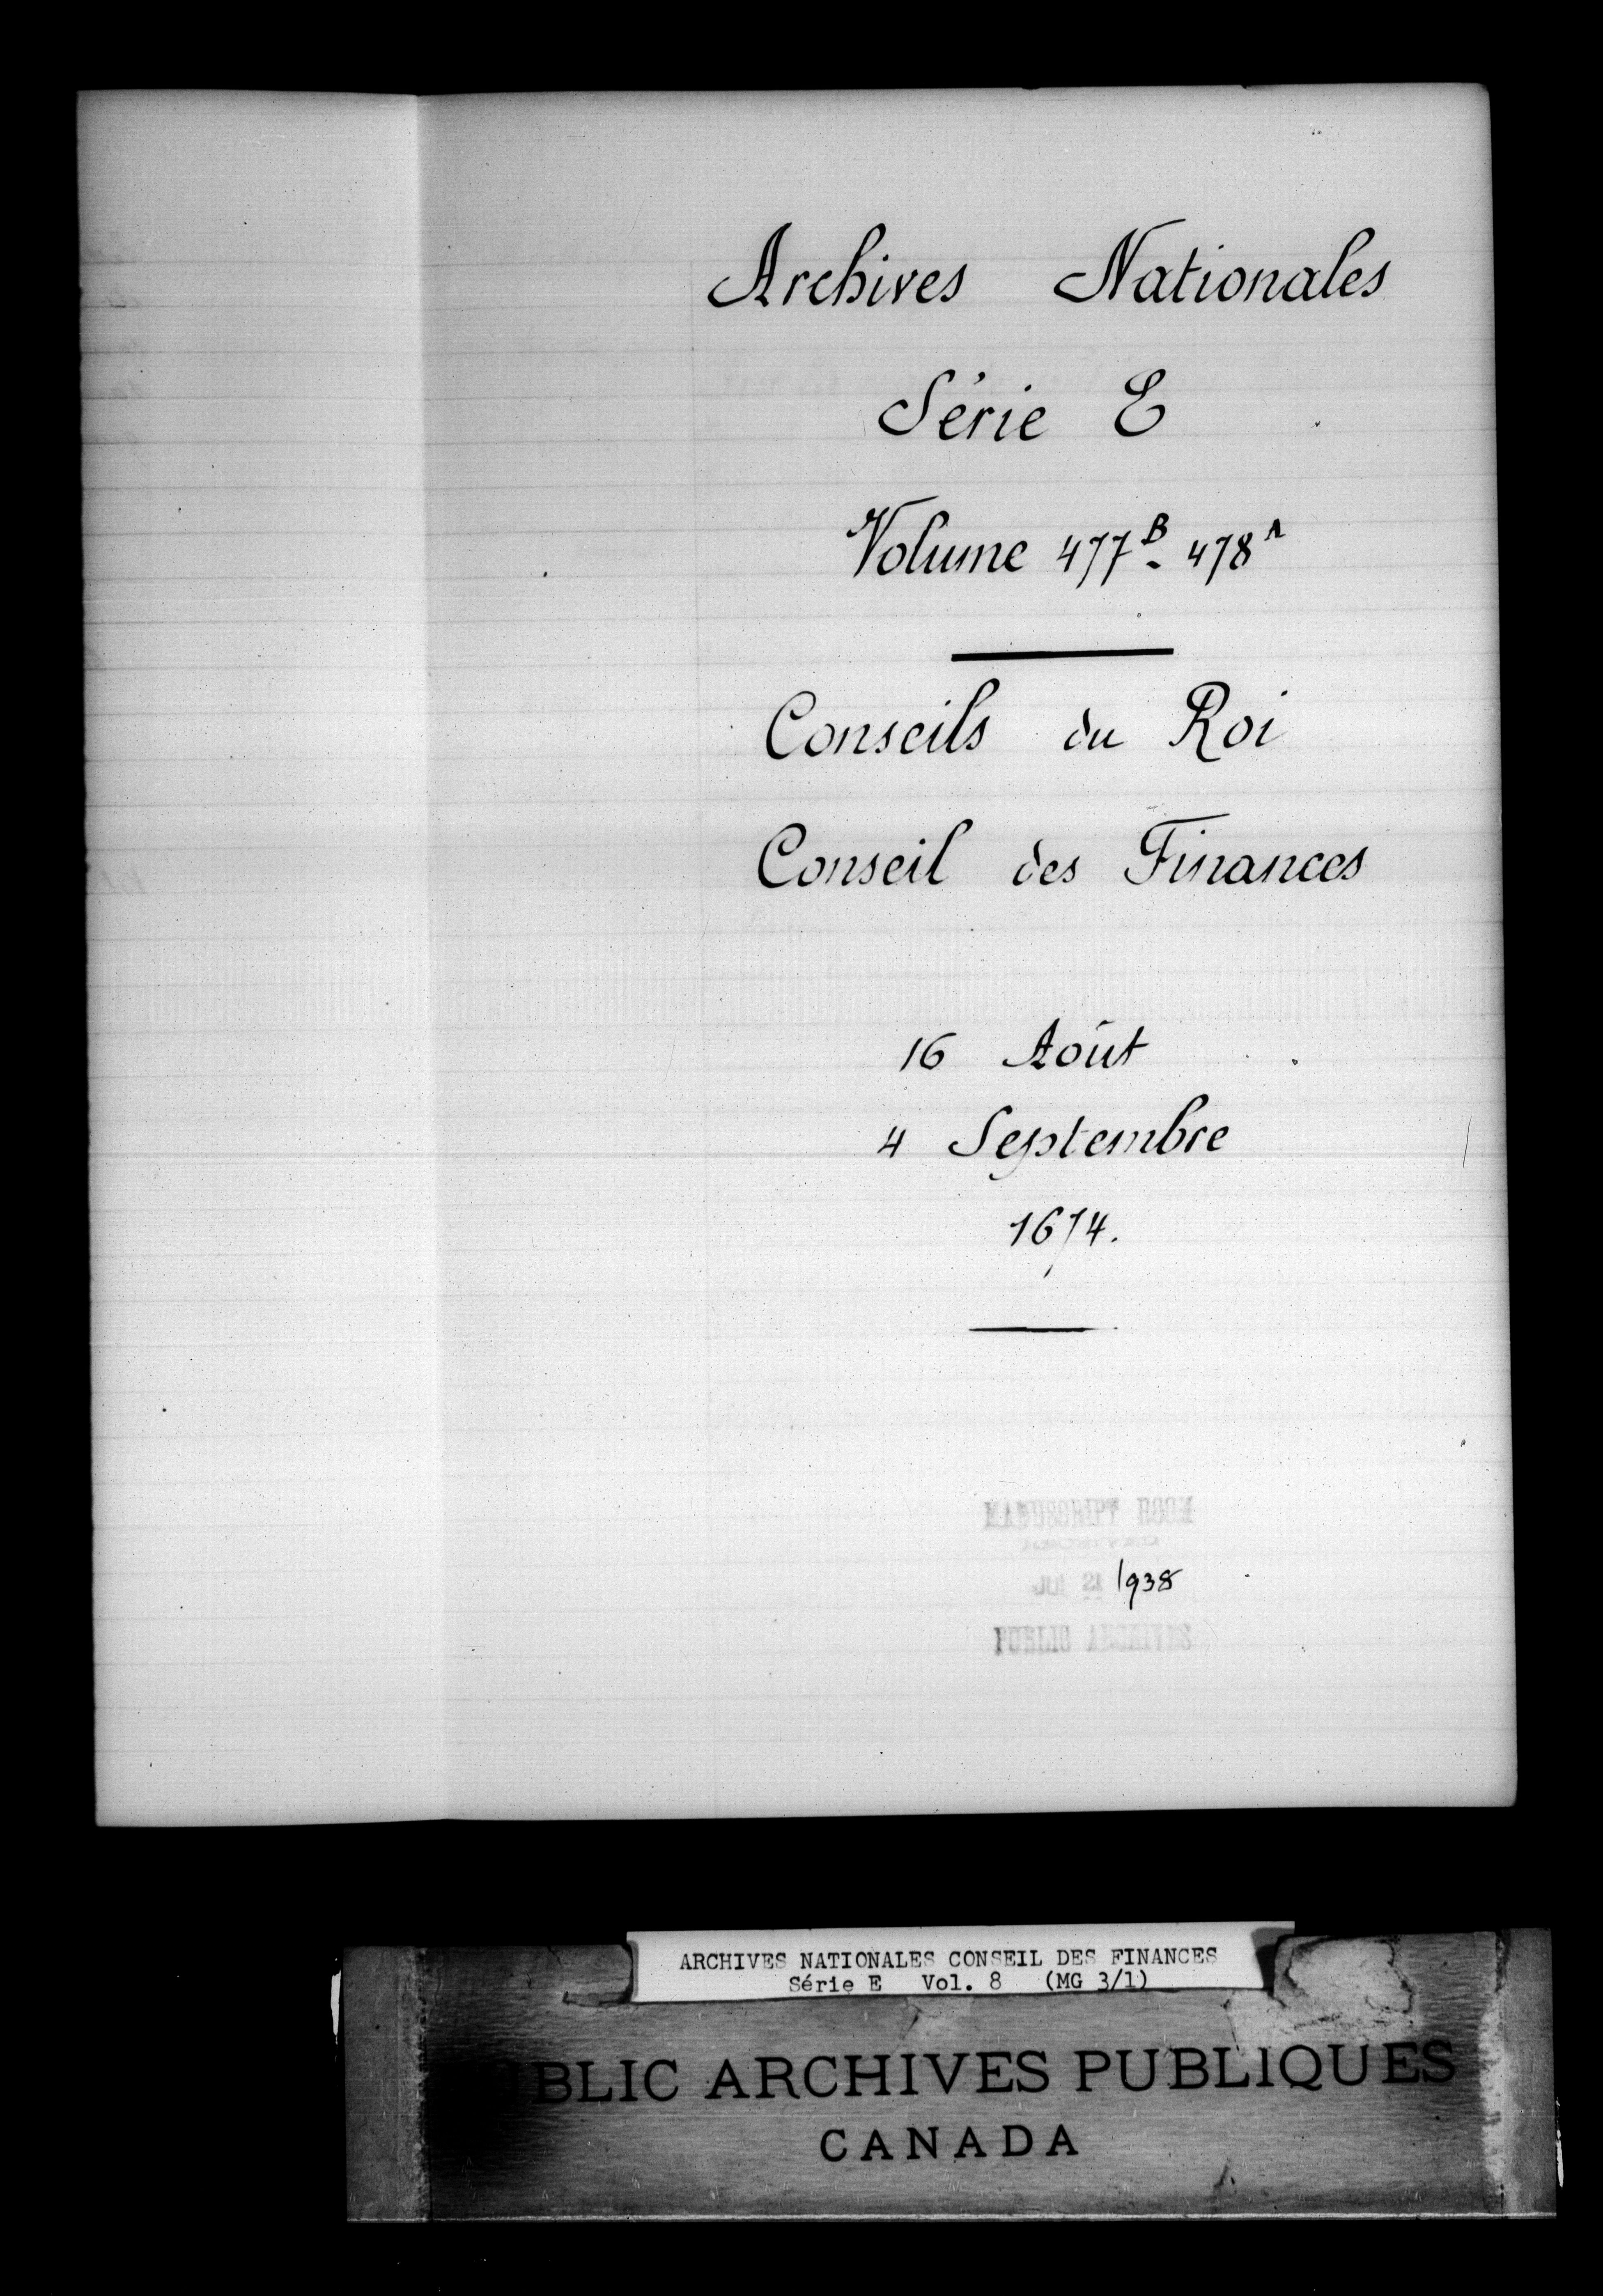 Archives Nationales
Série E
Volume 477ᴮ - 478ᴬ
Conseils du Roi
Conseil des Finances
16 Août
4 Septembre
1674.
MANUSCRIPT ROOM
JUL 21 1938
PUBLIC ARCHIVES
ARCHIVES NATIONALES CONSEIL DES FINANCES
Série E Vol. 8 (MG 3/1)
BLIC ARCHIVES PUBLIQUES
CANADA